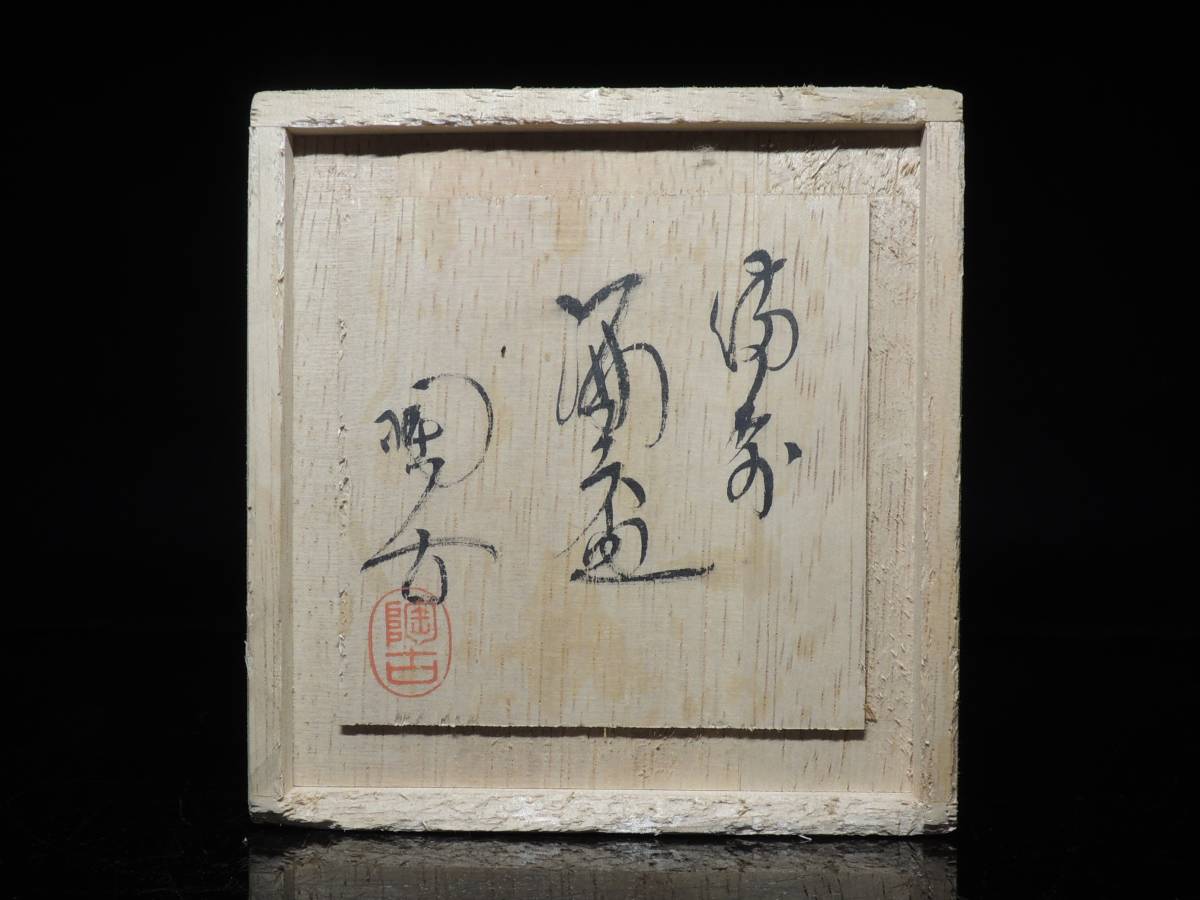 備前
盃
陶古
陶古